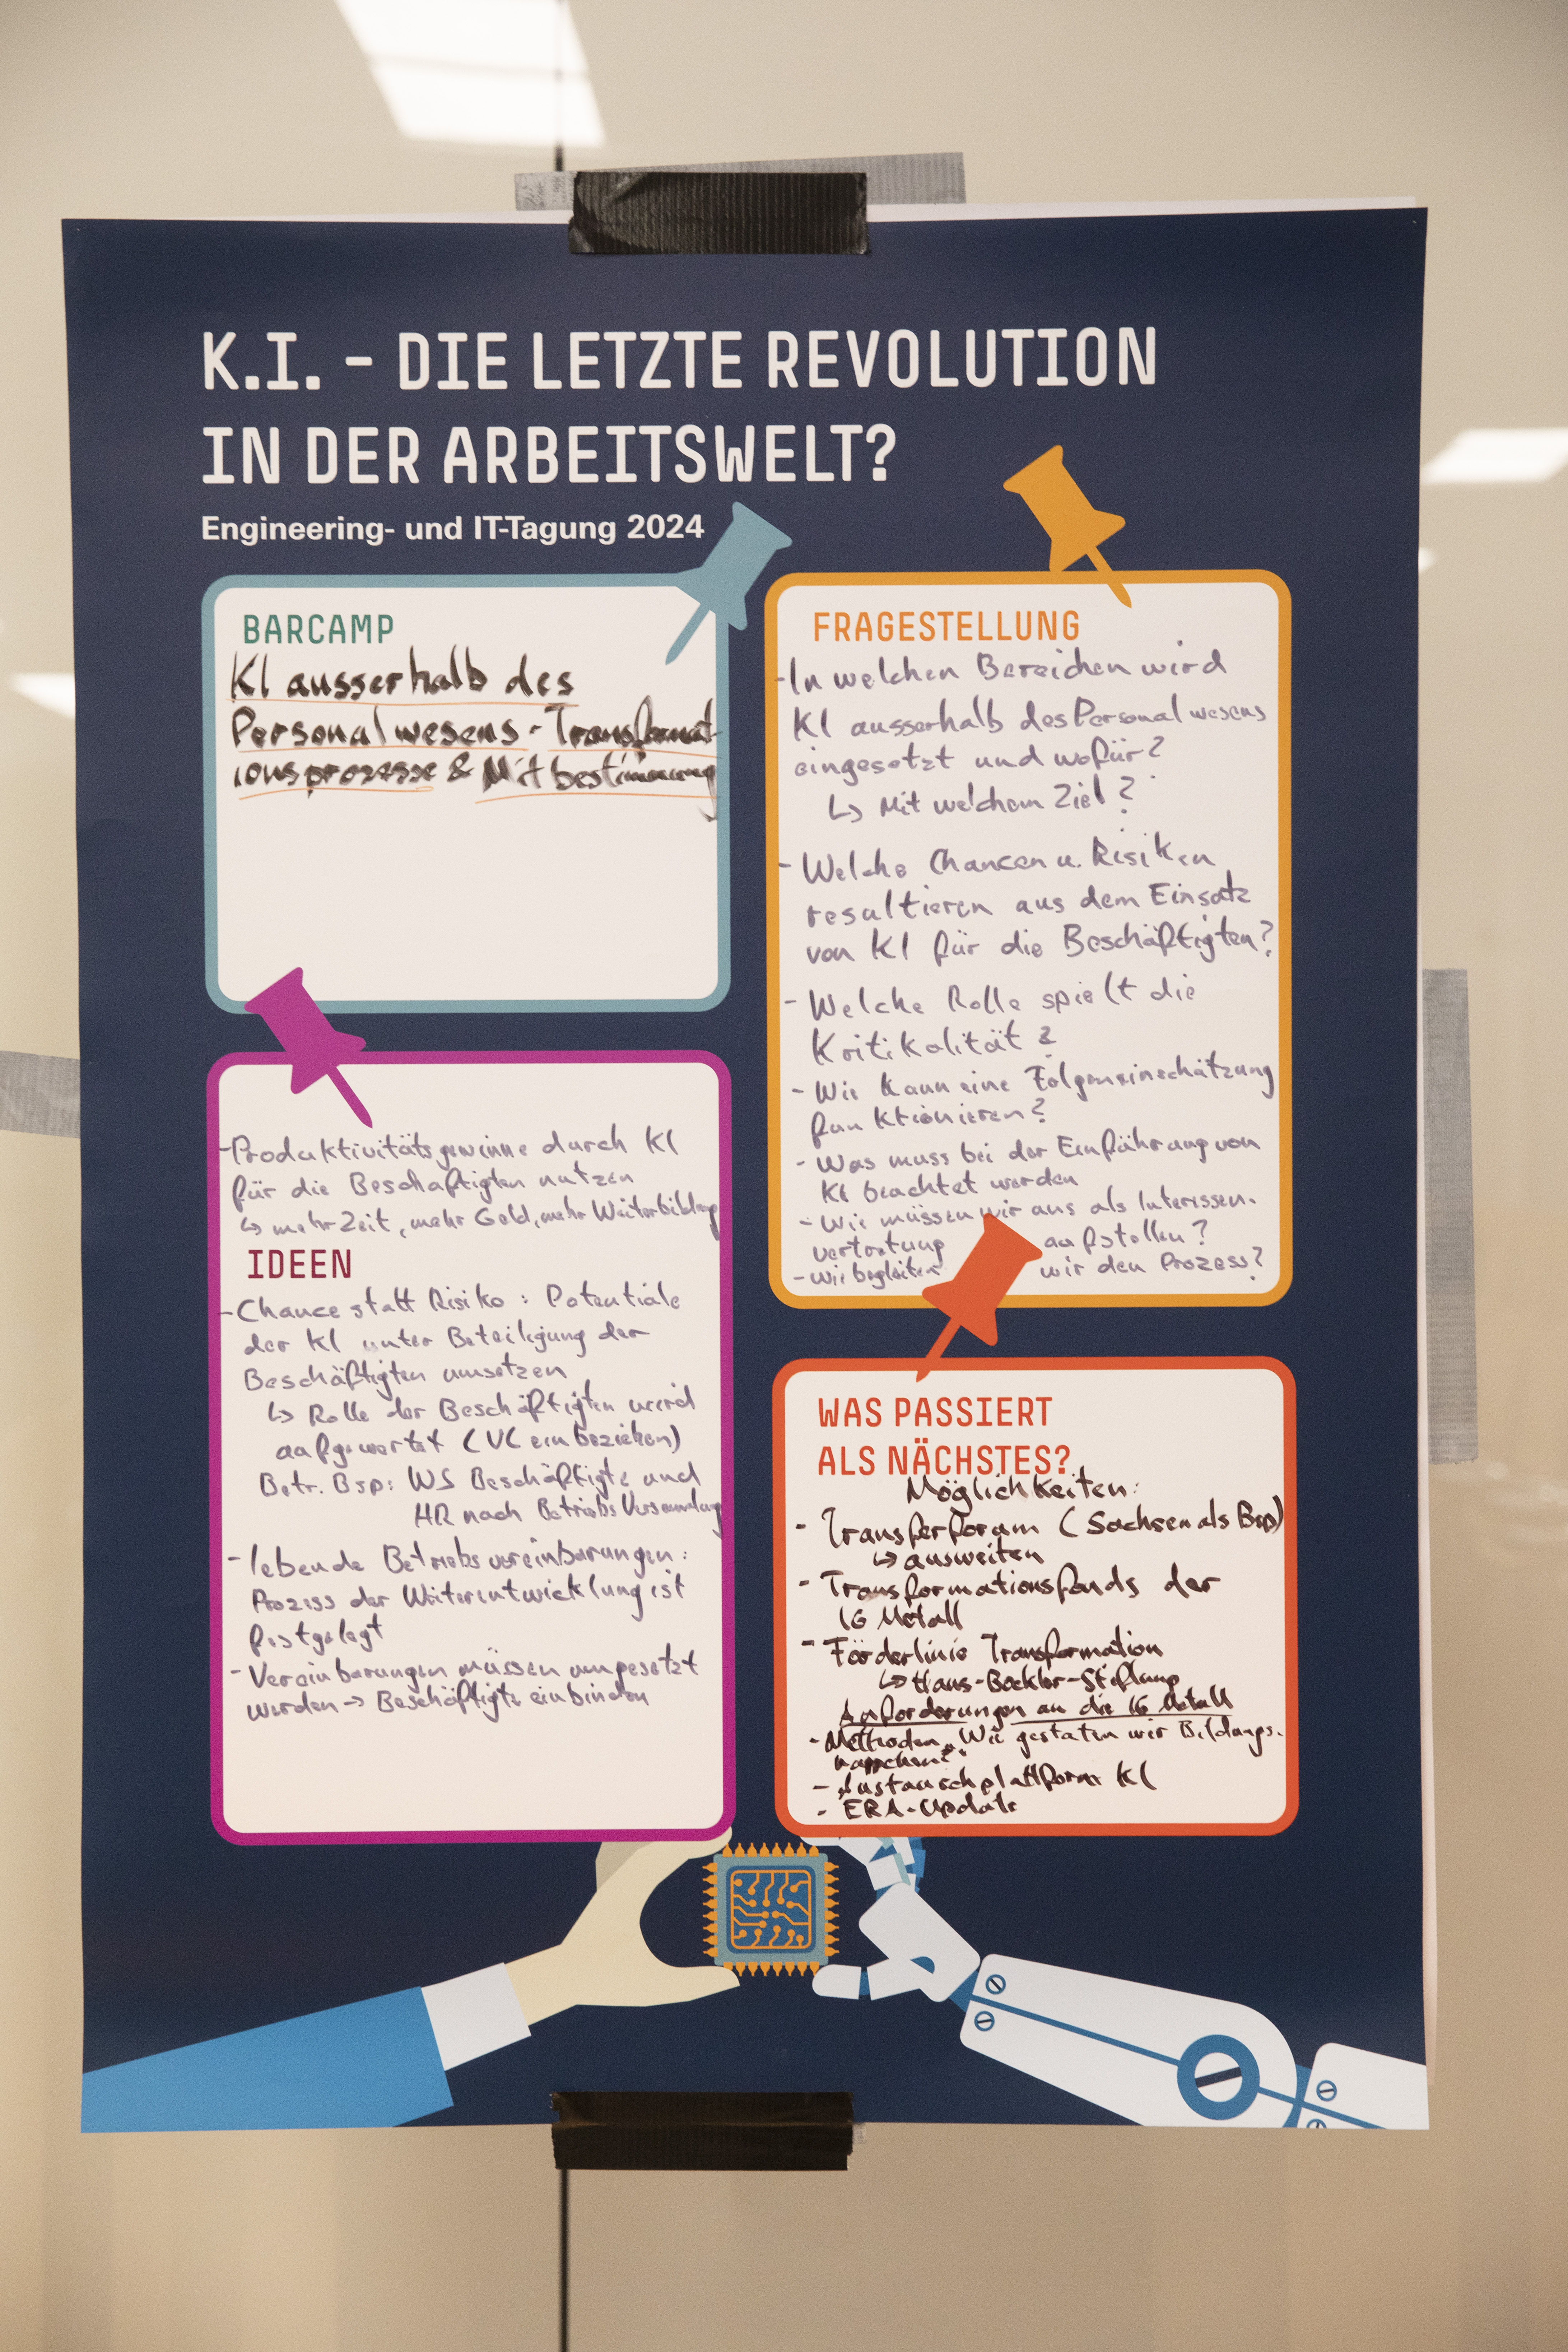 K.I. - DIE LETZTE REVOLUTION
IN DER ARBEITSWELT?
Engineering- und IT-Tagung 2024
BARCAMP
KI ausserhalb des
Personalwesens - Transformat-
ionsprozesse & Mitbestimmung
FRAGESTELLUNG
- In welchen Bereichen wird
KI ausserhalb des Personalwesens
eingesetzt und wofür?
↳ Mit welchem Ziel?
- Welche Chancen u. Risiken
resultieren aus dem Einsatz
von KI für die Beschäftigten?
- Welche Rolle spielt die
Kritikalität?
- Wie kann eine Folgeneinschätzung
funktionieren?
- Was muss bei der Einführung von
KI beachtet werden
- Wie müssen wir uns als Interessen-
vertretung aufstellen?
- Wie begleiten wir den Prozess?
- Produktivitätsgewinne durch KI
für die Beschäftigten nutzen
↳ mehr Zeit, mehr Geld, mehr Weiterbildung
IDEEN
- Chance statt Risiko: Potentiale
der KI unter Beteiligung der
Beschäftigten umsetzen
↳ Rolle der Beschäftigten wird
aufgewertet (VL einbeziehen)
Betr. Bsp: WS Beschäftigte und
HR nach Betriebsversammlung
- lebende Betriebsvereinbarungen:
Prozess der Weiterentwicklung ist
festgelegt
- Vereinbarungen müssen umgesetzt
werden → Beschäftigte einbinden
WAS PASSIERT
ALS NÄCHSTES?
Möglichkeiten:
- Transferforum (Sachsen als Bsp)
↳ ausweiten
- Transformationsfonds der
IG Metall
- Förderlinie Transformation
↳ Hans-Böckler-Stiftung
Anforderungen an die IG Metall
- Methoden „Wie gestalten wir Bildungs-
- Austauschplattform KI
- ERA-Update